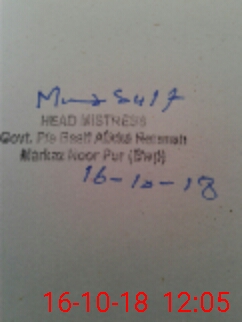 HEAD MISTRESS
Govt. P/s Basti Abdul Rehman
Markaz Noor Pur (Shqi)
16-10-18
16-10-18 12:05